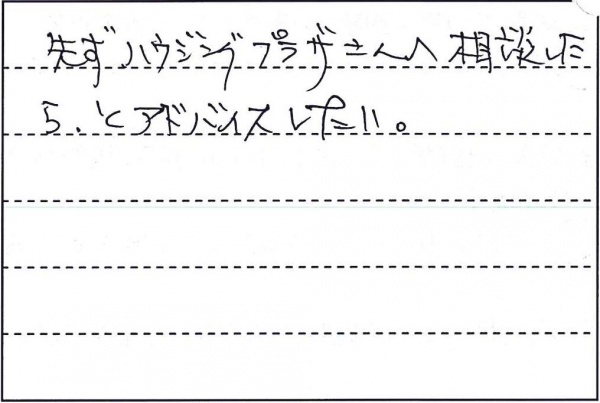 先ずハウジングプラザさんへ相談した
ら、とアドバイスしたい。